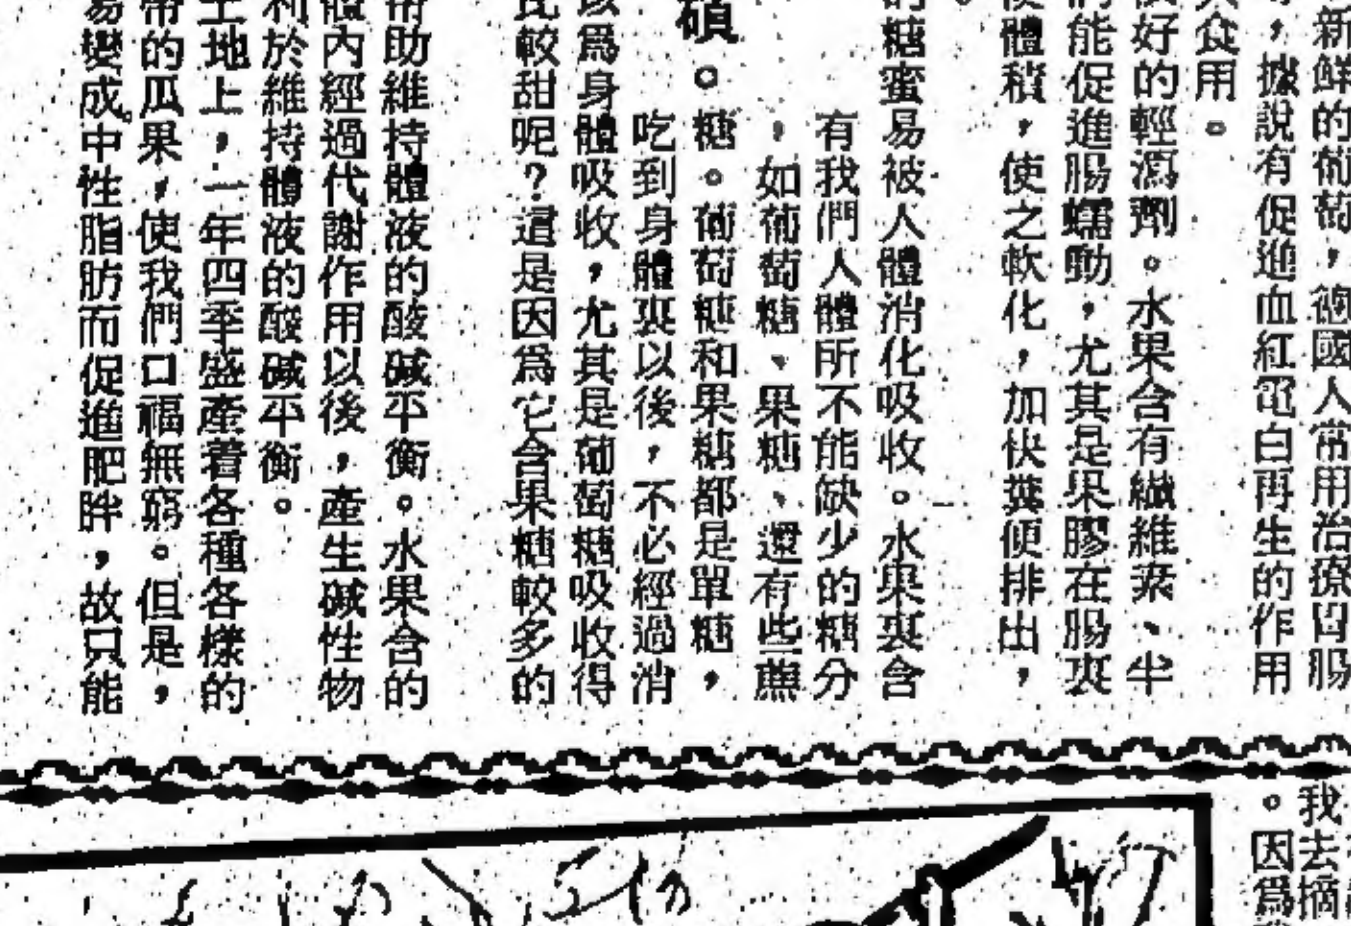 新鮮的葡萄，德國人常用治療胃腸
，據說有促進血紅蛋白再生的作用
食用。
好的輕瀉劑。水果含有纖維素、半
能促進腸蠕動，尤其是果膠在腸裏
體積，使之軟化，加快糞便排出，
的糖蜜易被人體消化吸收。水果裏含
有我們人體所不能缺少的糖分
，如葡萄糖、果糖、還有些蔗
糖。葡萄糖和果糖都是單糖，
碩。
吃到身體裏以後，不必經過消
爲身體吸收，尤其是葡萄糖吸收得
比較甜呢？這是因爲它含果糖較多的
助維持體液的酸碱平衡。水果含的
體內經過代謝作用以後，產生碱性物
利於維持體液的酸碱平衡。
土地上，一年四季盛產着各種各樣的
帶的瓜果，使我們口福無窮。但是，
易變成中性脂肪而促進肥胖，故只能
我去摘
。因爲